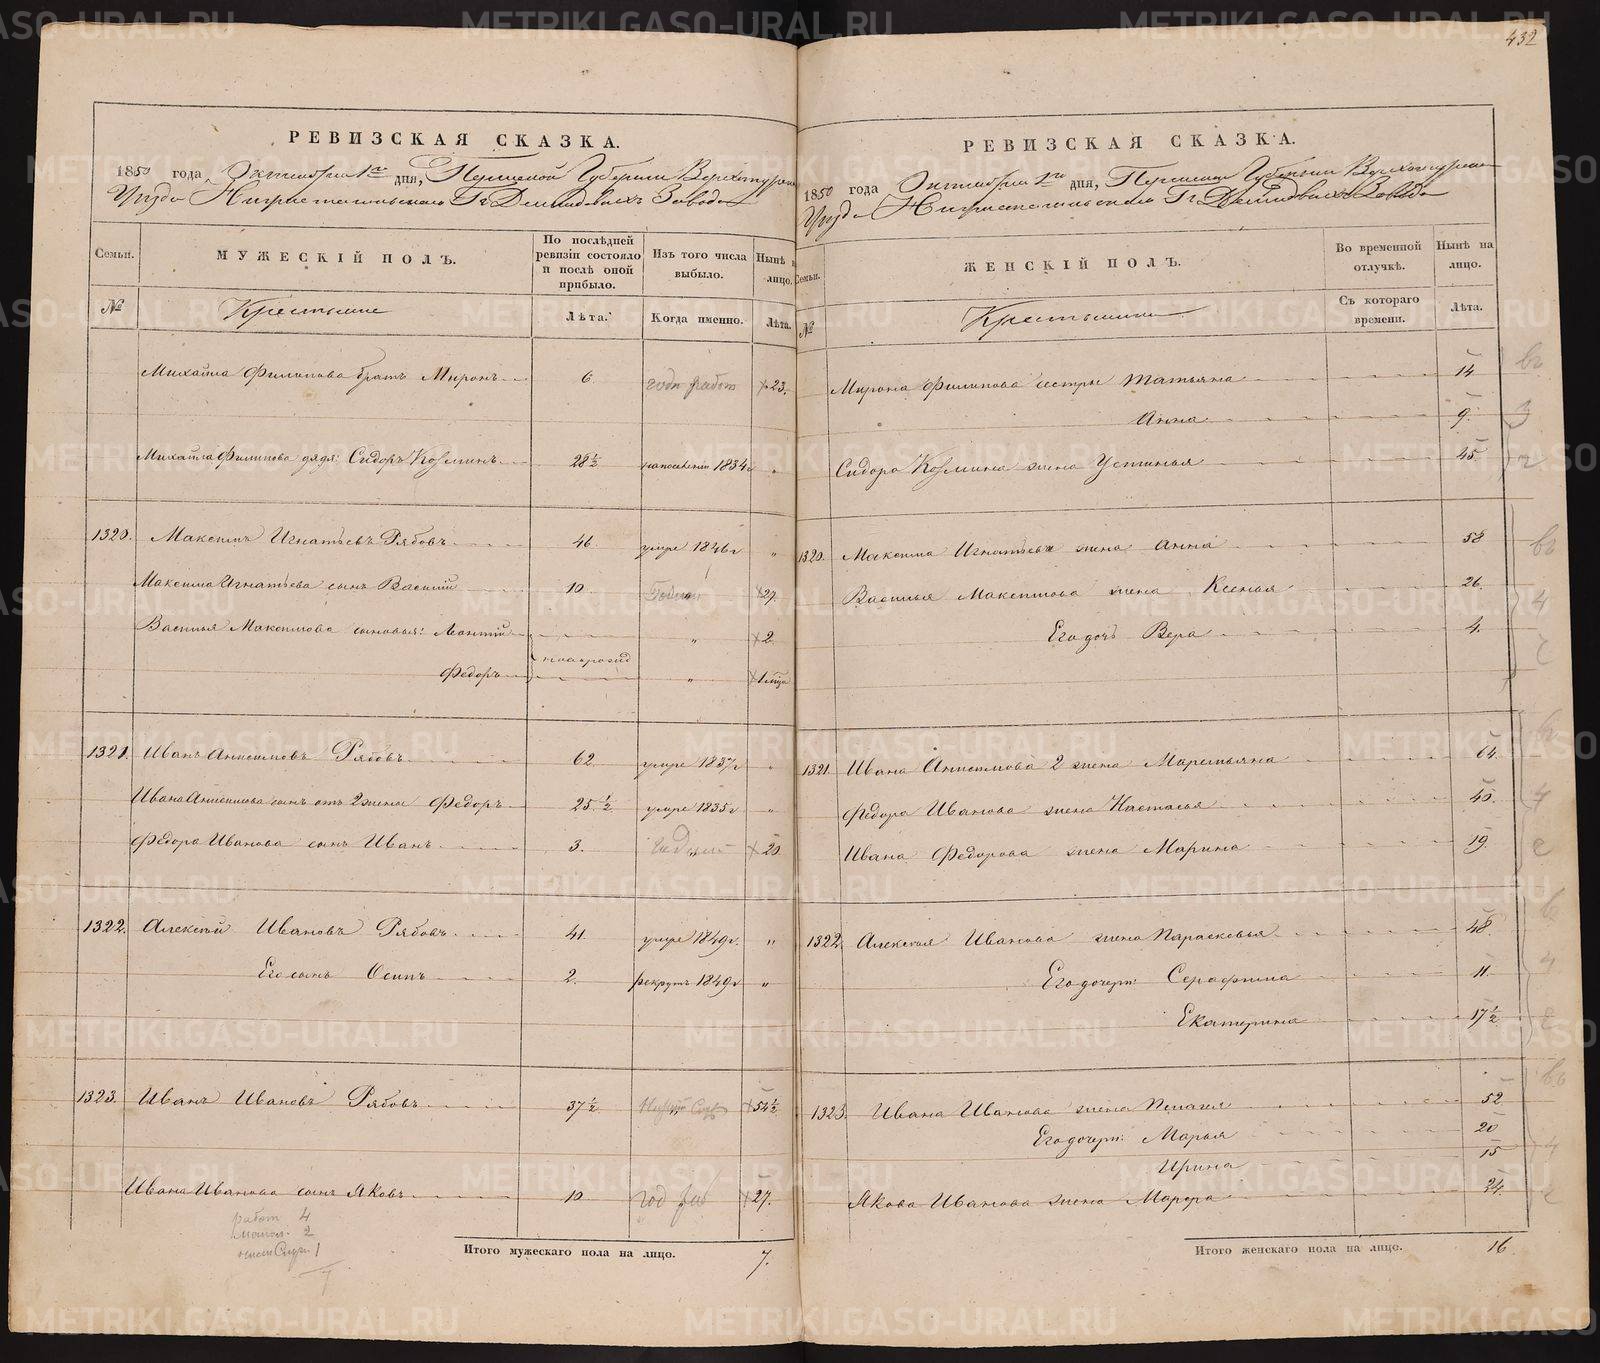 432
РЕВИЗСКАЯ СКАЗКА.
1850 года Октября 1го дня, Пермской Губернии Верхотурскаго
Уезда Нижнетагильскаго Гг. Демидовыхъ Завода
Семьи.
МУЖЕСКІЙ ПОЛЪ.
По послѣдней ревизіи состояло и послѣ оной прибыло.
Изъ того числа выбыло.
Нынѣ на лицо.
№
Крестьяне
Лѣта.
Когда именно.
Лѣта.
Михайла Филипова братъ Миронъ 6 годн работ 23.
Михайла Филипова дядя: Сидоръ Козминъ 28½ 1834 г "
1320. Максимъ Игнатьевъ Рябовъ 46 умре 1846 г "
Максима Игнатьева сынъ Василій 10. 27.
Василья Максимова сыновья: Леонтій " 2.
Федоръ " 1 мца
1321. Иванъ Анисимовъ Рябовъ 62 умре 1837 г "
Ивана Анисимова сынъ отъ 2 жены Федоръ 25½ умре 1835 г "
Федора Иванова сынъ Иванъ 3. 20.
1322. Алексѣй Ивановъ Рябовъ 41 умре 1849 г. "
Его сынъ Осипъ 2. рекрутъ 1849 г "
1323. Иванъ Ивановъ Рябовъ 37½ 54½
Ивана Иванова сынъ Яковъ 10 год раб 27.
работ 4
2
1
7
Итого мужескаго пола на лицо. 7.
РЕВИЗСКАЯ СКАЗКА.
1850 года Октября 1го дня, Пермской Губернии Верхотурскаго
Уезда Нижнетагильскаго Гг. Демидовыхъ Завода
Семьи.
ЖЕНСКІЙ ПОЛЪ.
Во временной отлучкѣ.
Нынѣ на лицо.
№
Крестьянки
Съ котораго времени.
Лѣта.
Мирона Филипова сестры Татьяна 14
Анна 9.
Сидора Козмина жена Устинья 45
1320. Максима Игнатьева жена Анна 58
Василья Максимова жена Ксенья 26.
Его дочь Вера 4.
1321. Ивана Анисимова 2 жена Маремьяна 64.
Федора Иванова жена Настасья 40.
Ивана Федорова жена Марина 19.
1322. Алексѣя Иванова жена Парасковья 48.
Его дочери: Серафима 11.
Екатерина 17½
1323. Ивана Иванова жена Пелагея 52
Его дочери: Марья 20
Ирина 15
Якова Иванова жена Марфа 24.
Итого женскаго пола на лицо. 16.
METRIKI.GASO-URAL.RU